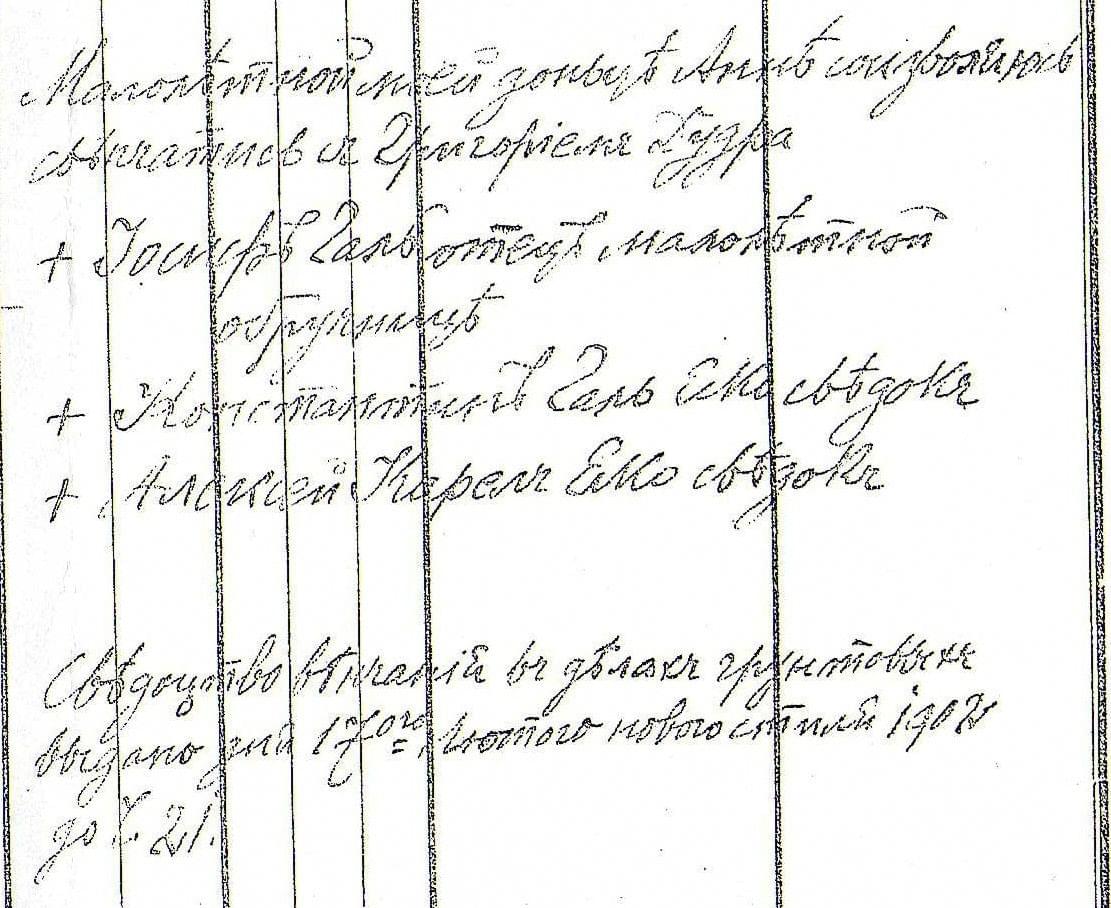 Малолѣтной моей доньцѣ Аннѣ соизволяюсь
вѣнчатись съ Григоріемъ Дудра
+ Іосифъ Галь отецъ малолѣтной
обручницѣ
+ Константинъ Галь яко свѣдокъ
+ Алексей Карелъ яко свѣдокъ
Свѣдоцтво вѣнчанія въ дѣлахъ грунтовыхъ
выдано дня 17ого Лютого нового стиля 1908
до Ч. 21.